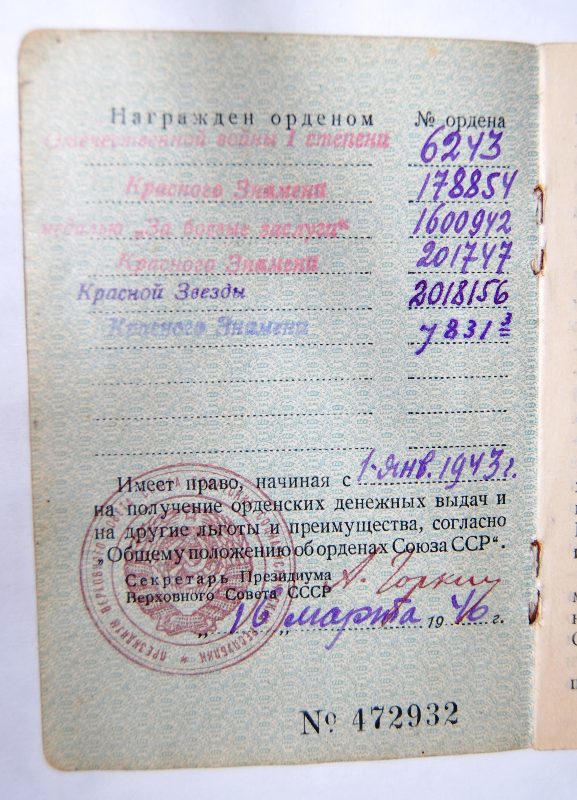 Награжден орденом № ордена
Отечественной войны I степени 6243
Красного Знамени 178854
медалью „За боевые заслуги“ 1600942
Красного Знамени 201747
Красной Звезды 2018156
Красного Знамени 7831 3
Имеет право, начиная с 1 янв. 1943 г.
на получение орденских денежных выдач и
на другие льготы и преимущества, согласно
„Общему положению об орденах Союза ССР“.
Секретарь Президиума А. Горкин
Верховного Совета СССР
„16„ марта 1946 г.
№ 472932